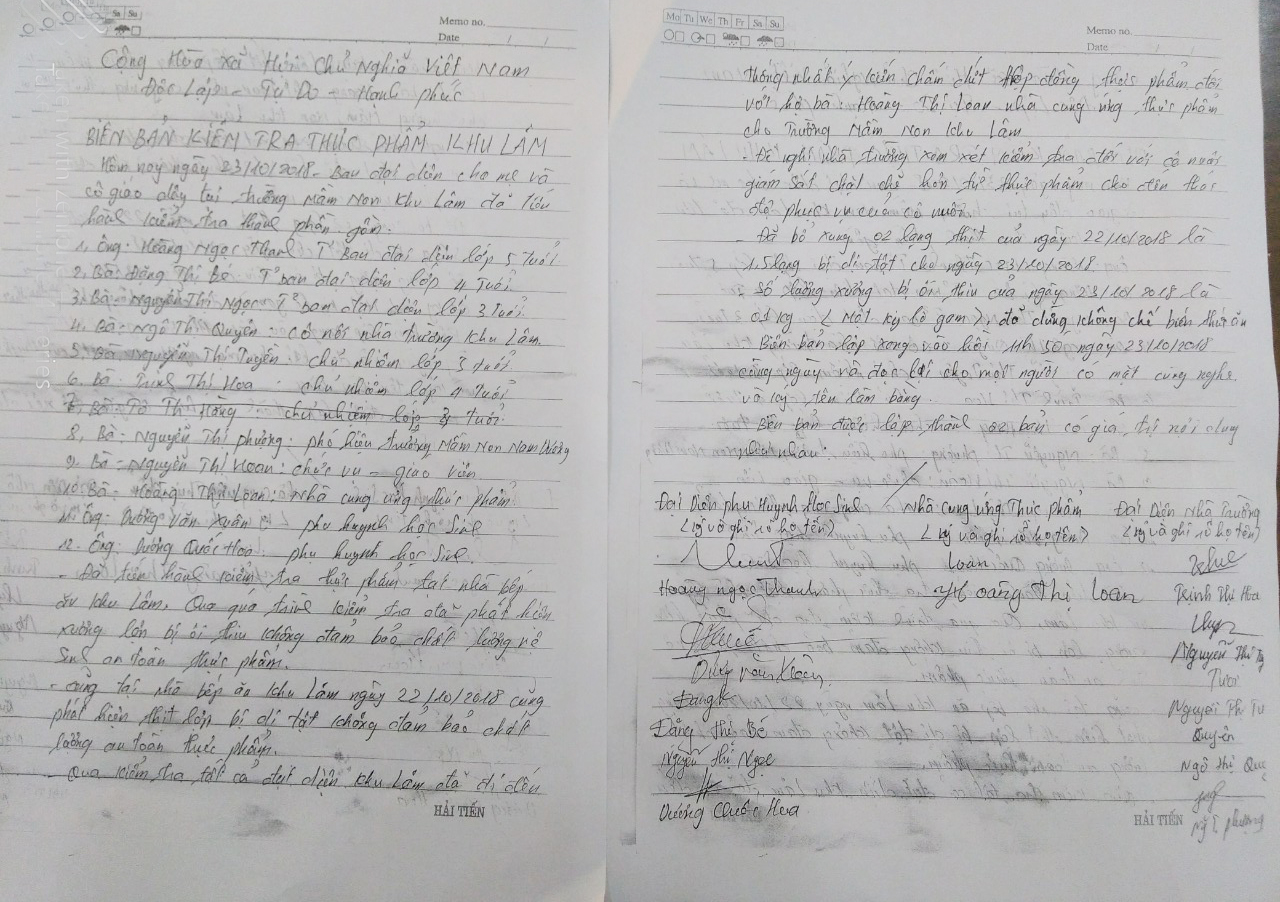 Sa Su
Memo no.
Date
Cộng Hòa xã Hội Chủ Nghĩa Việt Nam
Độc Lập - Tự Do - Hạnh phúc
BIÊN BẢN KIỂM TRA THỰC PHẨM KHU LÂM
Hôm nay ngày 23/10/2018. Ban đại diện cha mẹ và
cô giáo dạy tại trường Mầm Non Khu Lâm đã tiến
hành kiểm tra thành phần gồm.
1, Ông: Hoàng Ngọc Thanh Tr ban đại diện lớp 5 tuổi
2, Bà Đặng Thị Bé Tr ban đại diện lớp 4 tuổi
3, Bà Nguyễn Thị Ngọc Tr ban đại diện lớp 3 tuổi.
4. Bà - Ngô Thị Quyên cô nuôi nhà trường khu Lâm.
5. Bà Nguyễn Thị Tuyến. chủ nhiệm lớp 3 tuổi.
6. Bà. Trinh Thị Hoa. chủ nhiệm lớp 4 tuổi
7, Bà Tô Thị Hồng chủ nhiệm lớp 3 tuổi.
8, Bà - Nguyễn Thị phượng: phó hiệu trưởng Mầm Non Nam Dương
9. Bà - Nguyễn Thị Hoan: chức vụ - giáo viên
10. Bà - Hoàng Thị Loan: Nhà cung ứng thực phẩm.
11. Ông: Dương Văn Xuân phụ huynh học sinh
12. Ông: Dương Quốc Hoa. phụ huynh học sinh.
- Đã tiến hành kiểm tra thực phẩm tại nhà bếp
ăn khu Lâm. Qua quá trình kiểm tra đã phát hiện
xương lợn bị ôi thiu không đảm bảo chất lượng vệ
sinh an toàn thực phẩm.
- Cũng tại nhà bếp ăn khu Lâm ngày 22/10/2018 cũng
phát hiện thịt lợn bị dị tật không đảm bảo chất
lượng an toàn thực phẩm.
- Qua kiểm tra tất cả đại diện khu Lâm đã đi đến
HẢI TIẾN
Mo Tu We Th Fr Sa Su
Memo no.
Date
thống nhất ý kiến chấm dứt hợp đồng thực phẩm đối
với hộ bà: Hoàng Thị Loan nhà cung ứng thực phẩm
cho Trường Mầm Non Khu Lâm
- Đề nghị nhà trường xem xét kiểm tra đối với cô nuôi
giám sát chặt chẽ hơn từ thực phẩm cho đến thái
độ phục vụ của cô nuôi
- Đã bổ xung 02 lạng thịt của ngày 22/10/2018 là
1.5 lạng bị dị tật cho ngày 23/10/2018
- Số lượng xương bị ôi thiu của ngày 23/10/2018 là
01 kg (Một ky lô gam), đã dừng không chế biến thức ăn
Biên bản lập xong vào hồi 11h 50, ngày 23/10/2018
cùng ngày và đọc lại cho mọi người có mặt cùng nghe
và ký tên làm bằng.
Biên bản được lập thành 02 bản có giá trị nội dung
như nhau.
Đại Diện phụ Huynh Học Sinh Nhà cung ứng Thực phẩm Đại Diện Nhà Trường
(ký và ghi rõ họ tên) (ký và ghi rõ họ tên) (ký và ghi rõ họ tên)
Loan
Hoàng ngọc Thanh Hoàng Thị Loan Trịnh Thị Hoa
Dương văn Xuân
Đặng Thị Bé
Quyên
Nguyễn Thị Ngọc
Ngô Thị Quyên
Dương Quốc Hoa
HẢI TIẾN
Ng T. phượng